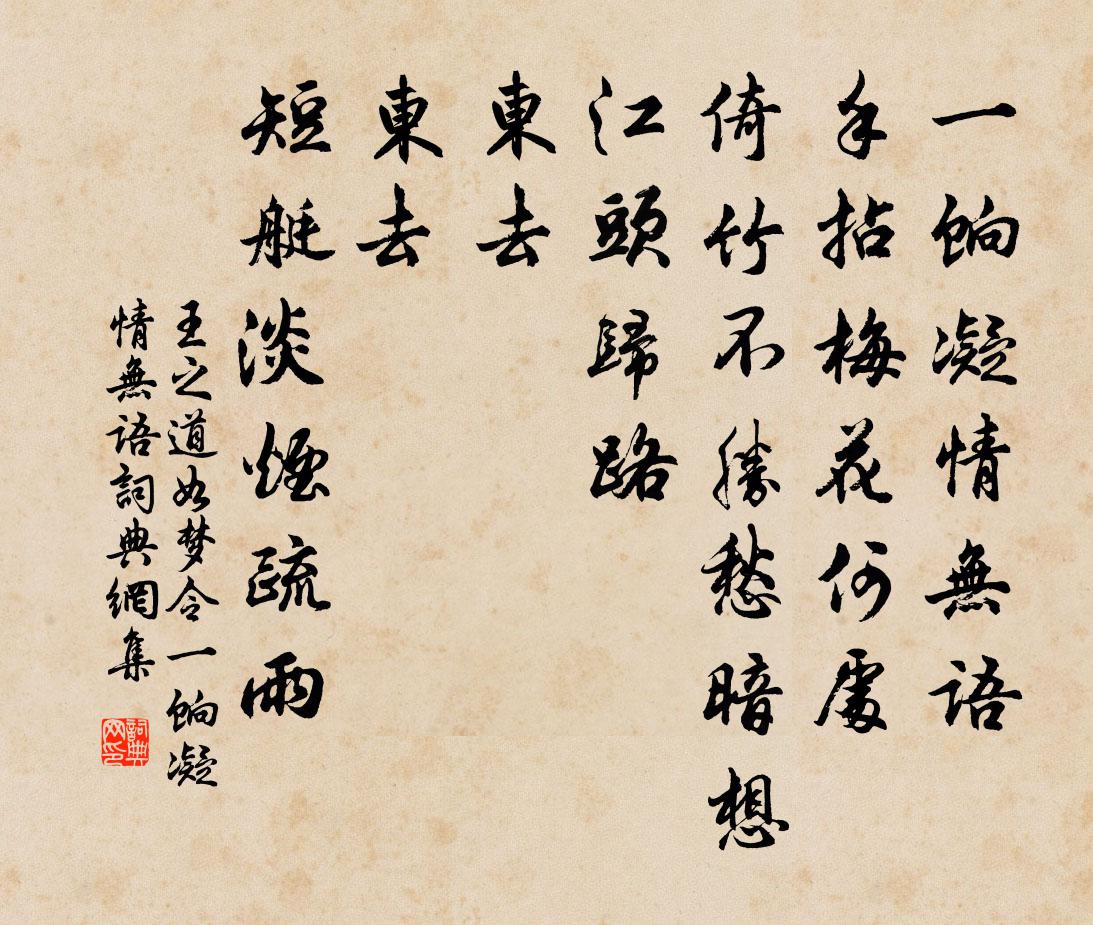 一餉凝情無語
手拈梅花何處
倚竹不勝愁暗想
江頭歸路
東去
東去
短艇淡煙疏雨
王之道如梦令一餉凝
情無語詞典網集
詞典网印